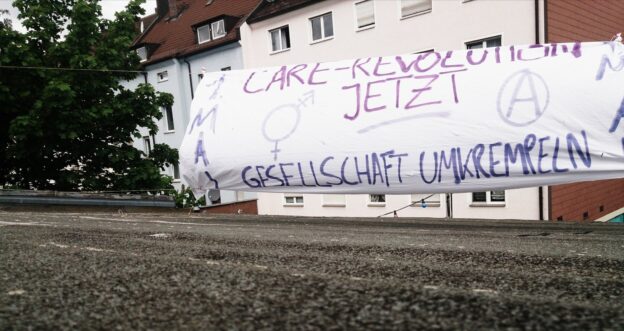 CARE-REVOLUTION
JETZT
1. MAY
A
GESELLSCHAFT UMKREMPELN